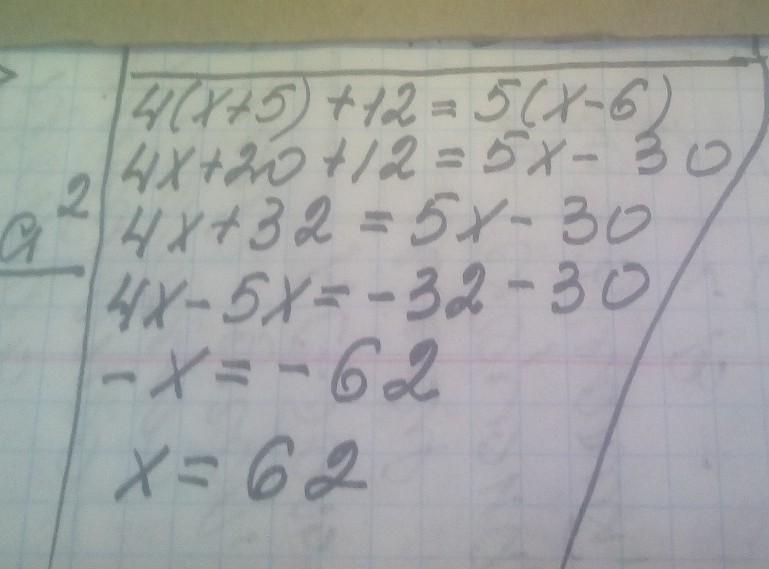 4(x+5) +12 = 5(x-6)
4x+20+12 = 5x- 30
a²
4x+32 = 5x- 30
4x-5x= -32-30
-x= -62
x= 62